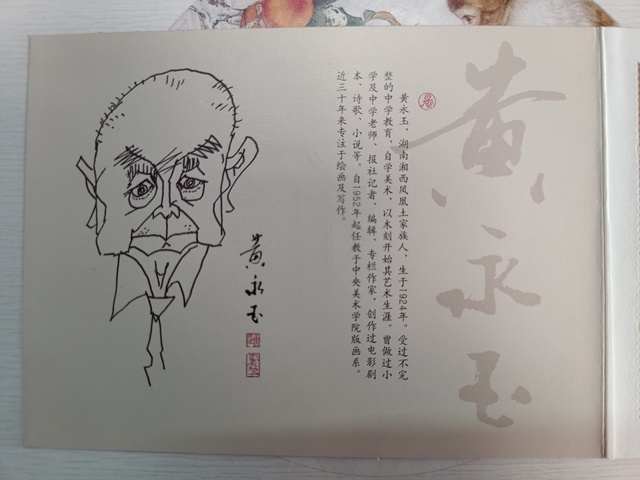 黄永玉
黄永玉，湖南湘西凤凰土家族人，生于1924年。受过不完
整的中学教育，自学美术，以木刻开始其艺术生涯。曾做过小
学及中学老师、报社记者、编辑、专栏作家，创作过电影剧
本、诗歌、小说等。自1952年起任教于中央美术学院版画系。
近三十年来专注于绘画及写作。
黄永玉